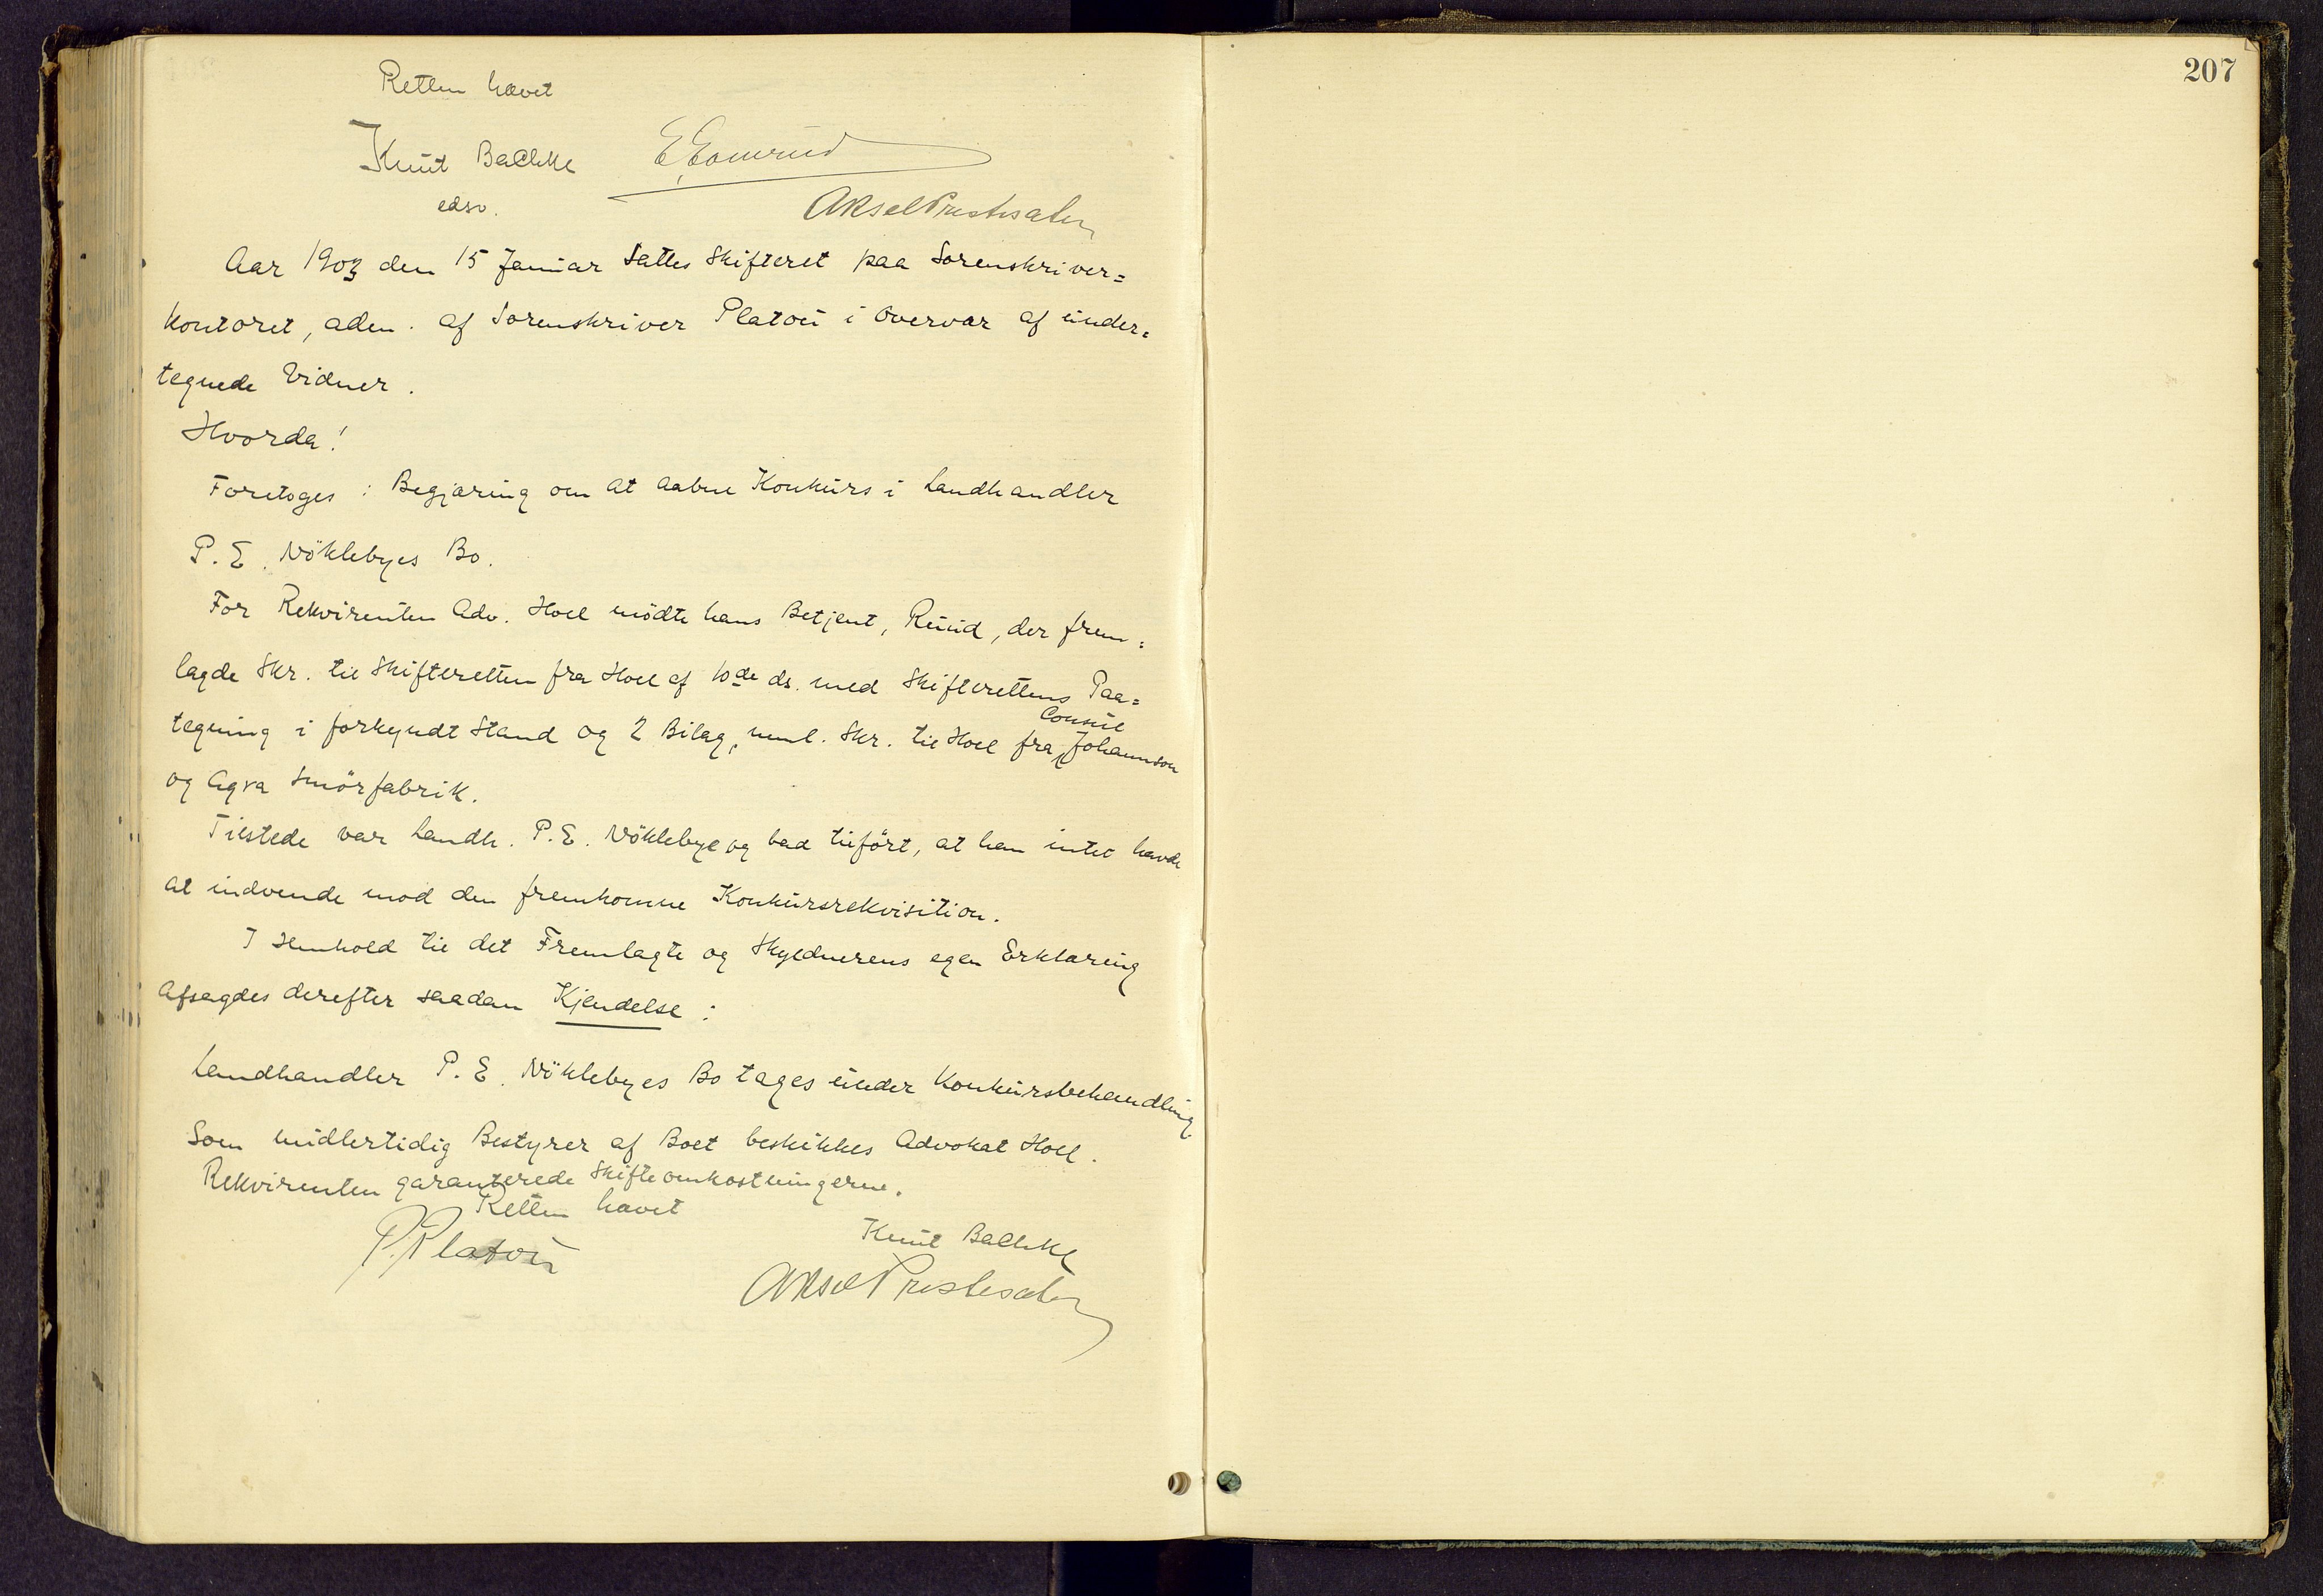 Retten hævet
Knut Bachke
edsv.
Aksel Prestesæter
207
Aar 1903 den 15 Januar sattes Skifteret paa Sorenskriver=
kontoret, adm. af Sorenskriver Platou i Overvær af under=
tegnede Vidner.
Hvorda!
Foretoges: Begjæring om at aabne Konkurs i Landhandler
P. E. Nöklebyes Bo.
For Rekvirenten Adv. Hoel mödte hans Betjent, Ruud, der frem=
lagde Skr. til Skifteretten fra Hoel af 10de ds. med Skifterettens Paa=
tegning i forkyndt Stand og 2 Bilag, neml. Skr. til Hoel fra Consul Johannson
og Agra Smörfabrik.
Tilstede var Landh. P. E. Nöklebye og bad tilfört, at han intet havde
at indvende mod den fremkomne Konkursrekvisition.
I Henhold til det Fremlagte og Skyldnerens egen Erklæring
afsagdes derefter saadan Kjendelse:
Landhandler P. E. Nöklebyes Bo tages under Konkursbehandling
Som midlertidig Bestyrer af Boet beskikkes Advokat Hoel.
Rekvirenten garanterede Skifteomkostningerne.
Retten hævet
P. Platou
Knut Bachke
Aksel Prestesæter